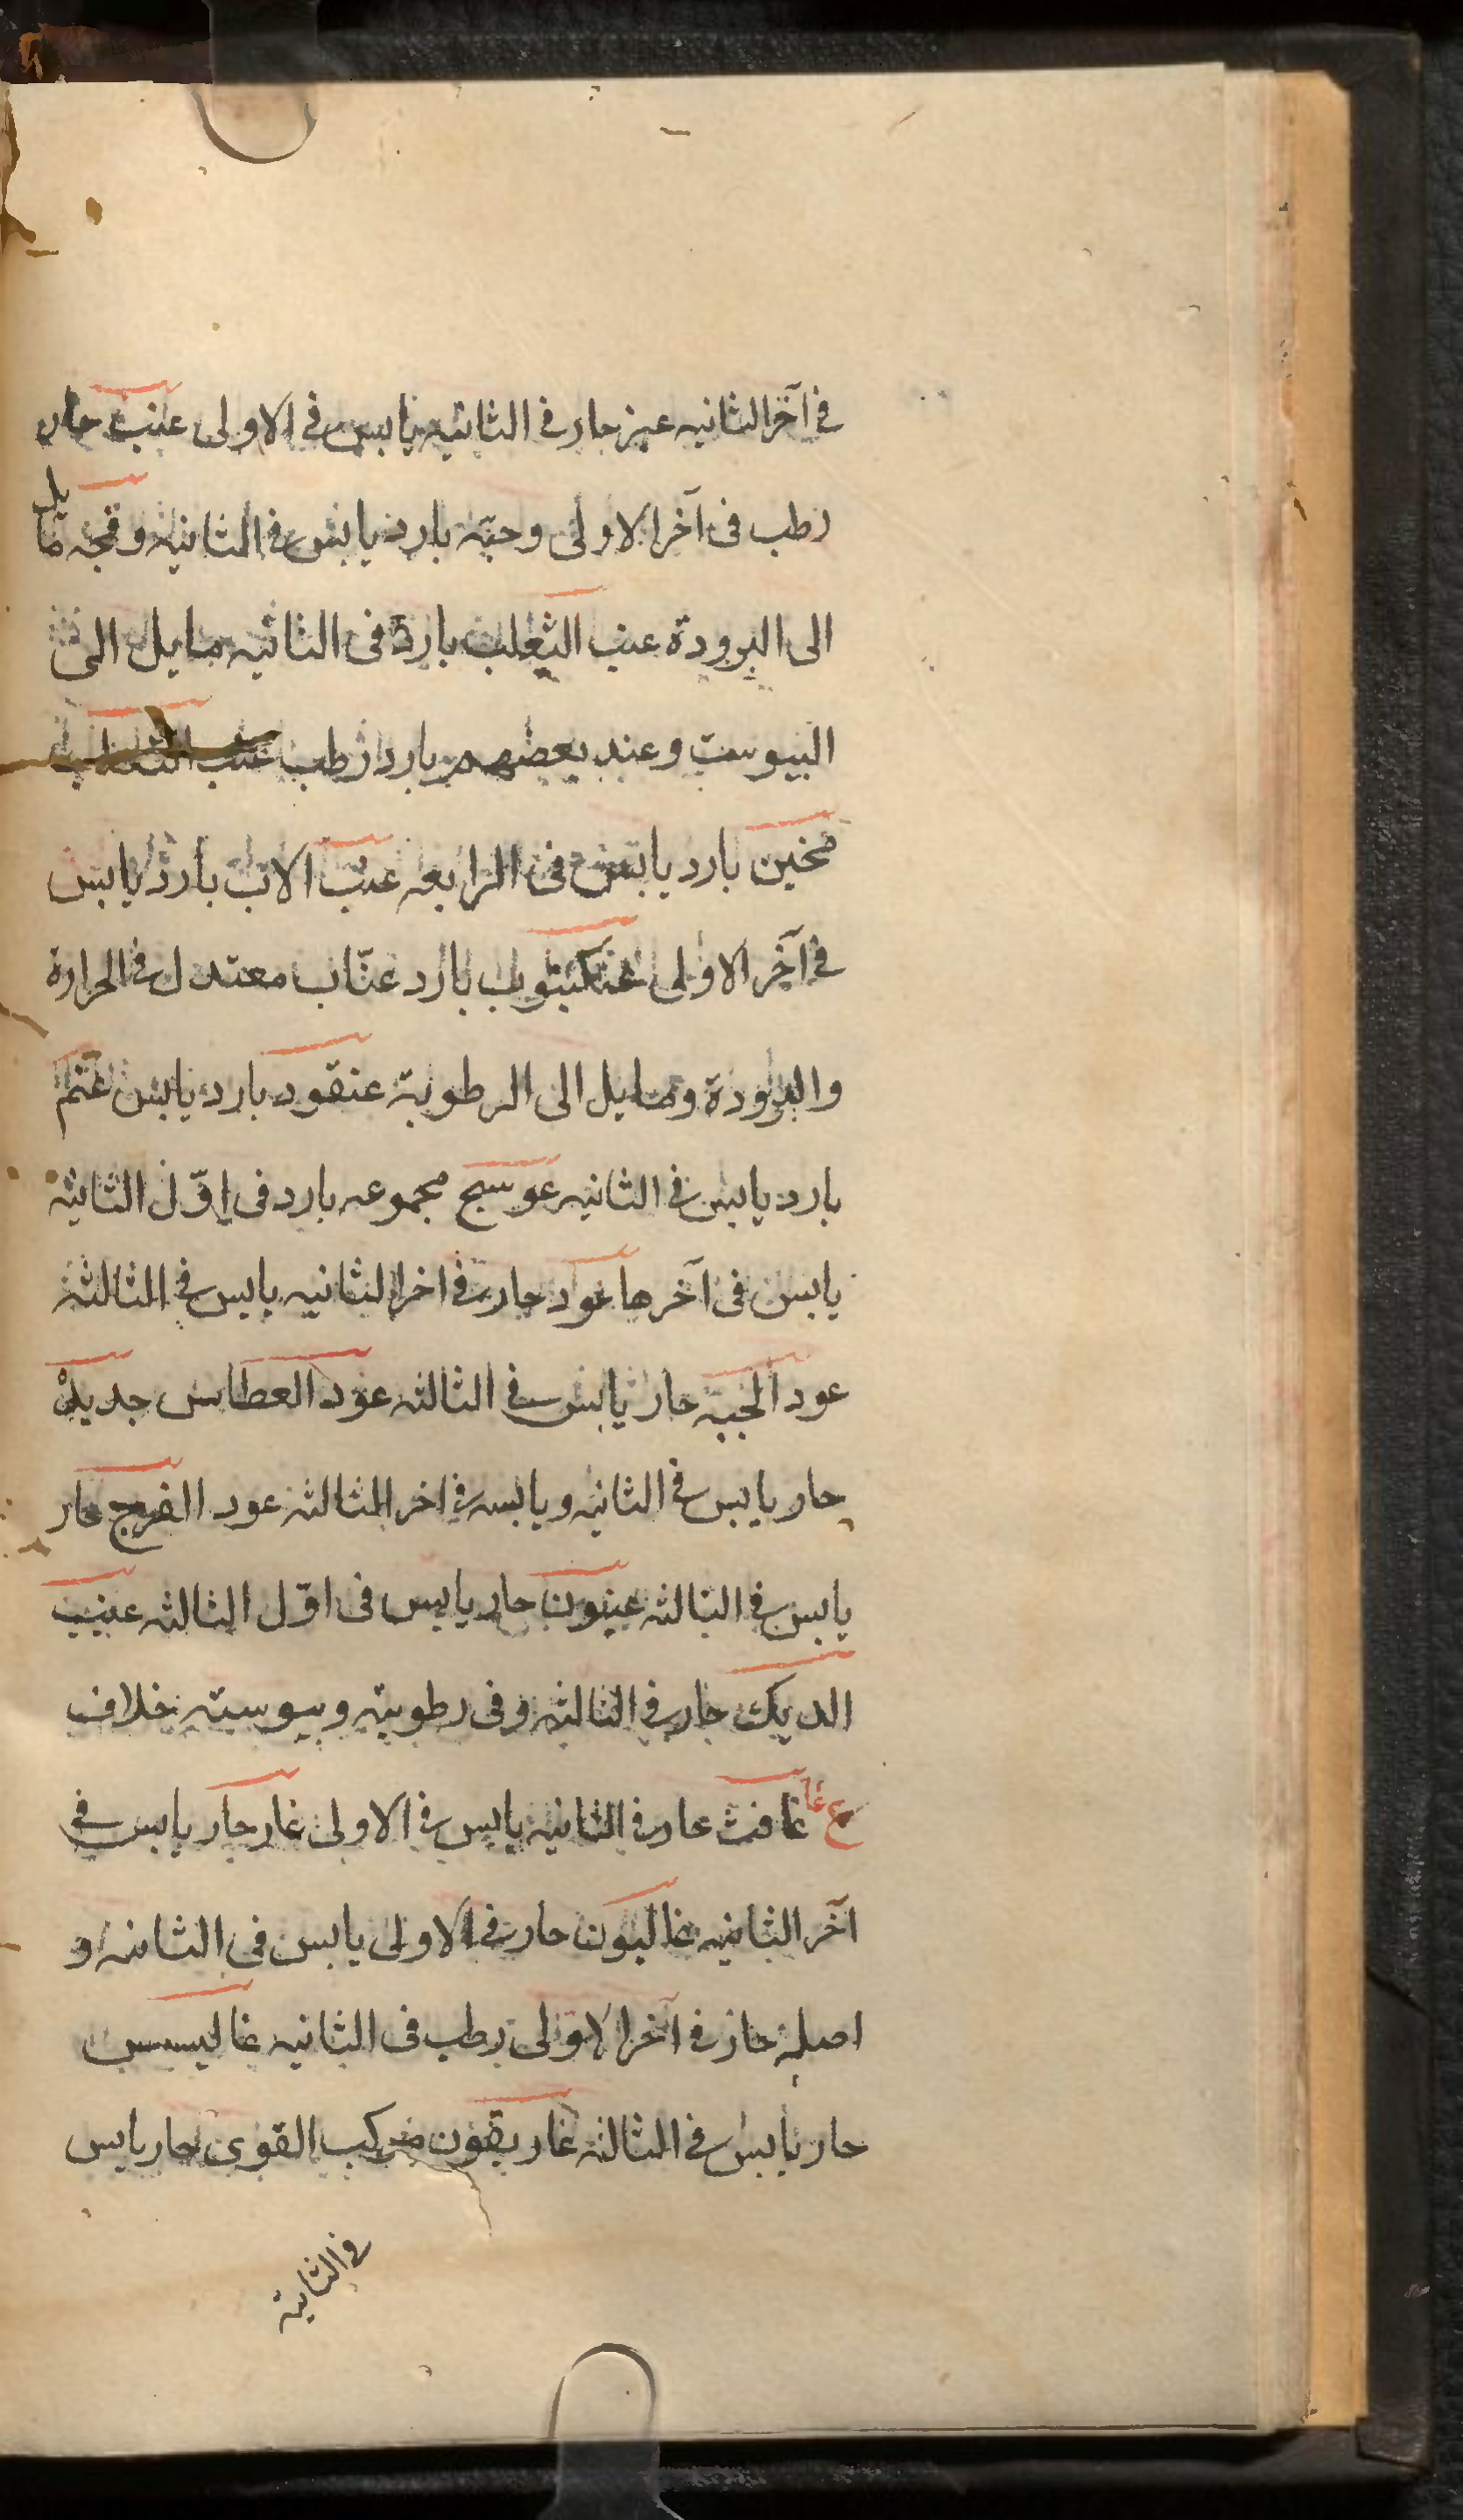 فی آخر الثانیه عنبر حار فی الثانیه یابس فی الاولی عنب حار
رطب فی آخر الاولی وحبّه بارد یابس فی الثانیة وقمحه مایل
الی البرودة عنب الثعلب بارد فی الثانیه مایل الی
الیبوست وعند بعضهم بارد رطب عنب الثعلب
مخنین بارد یابس فی الرابعه عنب الاب بارد یابس
فی آخر الاولی عنکبوت بارد عنّاب معتدل فی الحرارة
والبرودة ومایل الی الرطوبة عنقود بارد یابس عنم
بارد یابس فی الثانیه عوسج مجموعه بارد فی اوّل الثانیة
یابس فی آخرها عود حار فی اخر الثانیه یابس فی الثالثة
عود الجبه حار یابس فی الثالثه عود العطاس جدیده
حار یابس فی الثانیه ویابسه فی اخر الثالثه عود الفرج حار
یابس فی الثالثه عینون حار یابس فی اوّل الثالثه عینب
الدیک حار فی الثالثه وفی رطوبیته ویبوسیته خلاف
ع غا غافث حار فی الثانیة یابس فی الاولی غار حار یابس فی
آخر الثانیه غالیون حار فی الاولی یابس فی الثانیه و
اصله حار فی آخر الاولی رطب فی الثانیه غالیسس
حار یابس فی الثالثه غاریقون مرکب القوی حار یابس
فی الثانیة